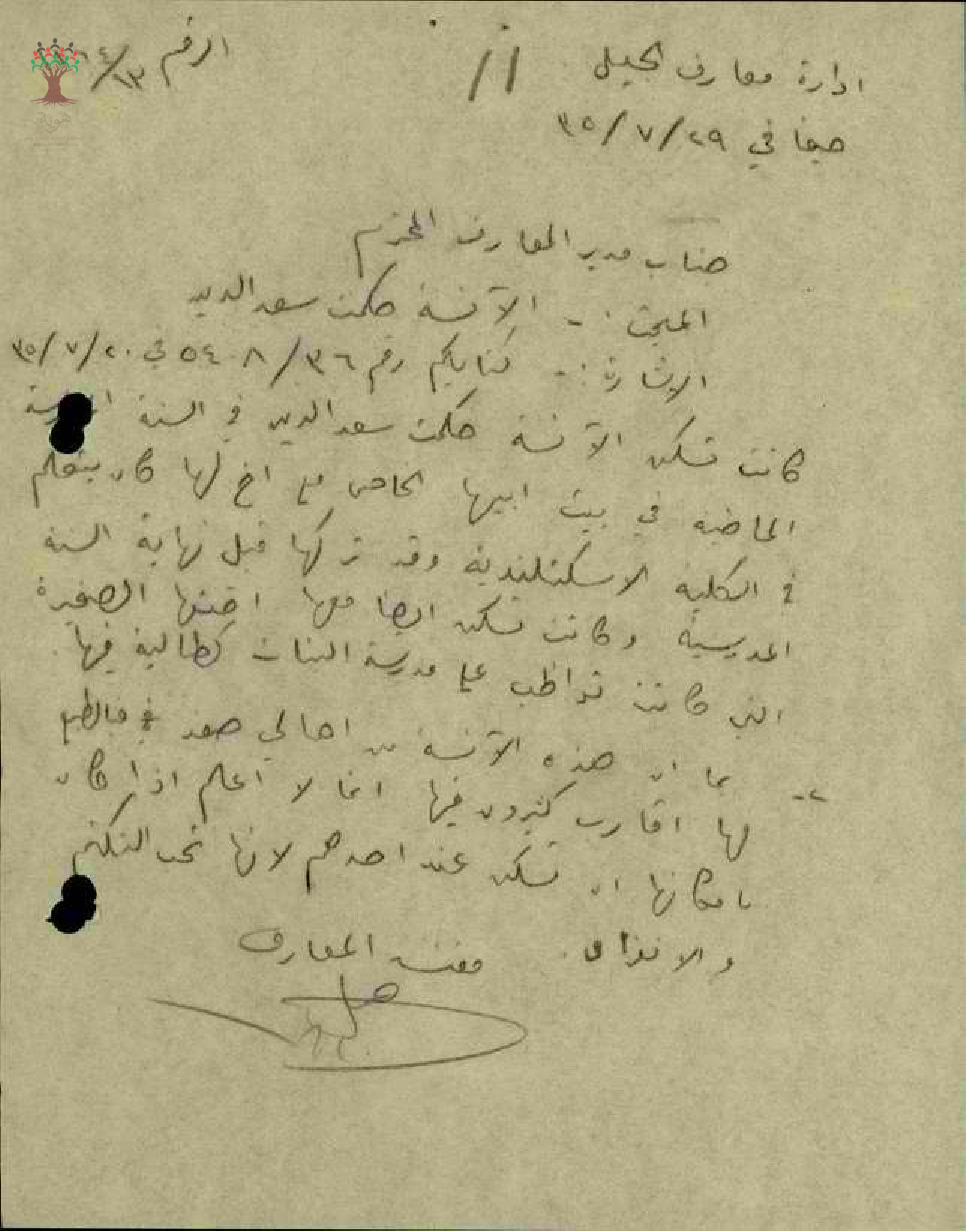 ادارة معارف الجليل // الرقم ٤/١٣
حيفا في ٢٩/٧/٣٥
جناب مدير المعارف المحترم
المبحث :- الآنسة حكمت سعد الدين
الاشارة :- كتابكم رقم ٣٦/٨ ٥٤ في ٢٠/٧/٣٥
كانت تسكن الآنسة حكمت سعد الدين في السنة
الماضية في بيت ابيها الخاص مع اخ لها كان يتعلم
في الكلية الاسكتلندية وقد تركها قبل نهاية السنة
المدرسية وكانت تسكن ايضا معها اختها الصغيرة
التي كانت تواظب على مدرسة البنات كطالبة فيها.
٢- بما ان هذه الآنسة من اهالي صفد في
لها اقارب كثيرون فيها انما لا اعلم اذا كان
بامكانها ان تسكن عند احدهم لانها تحب التكتم
والانزواء. مفتش المعارف